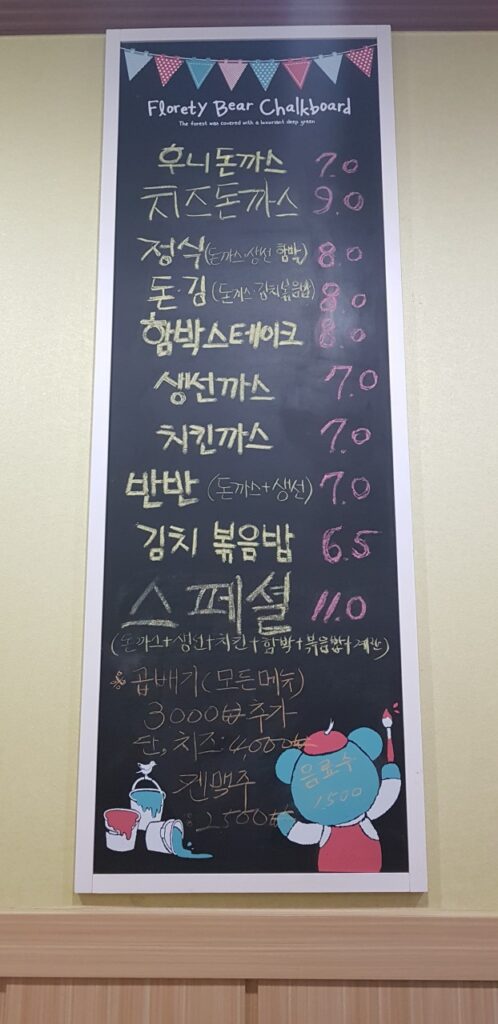 Florety Bear Chalkboard
The forest was covered with a luxuriant deep green
우니돈까스 7.0
치즈돈까스 9.0
정식(돈까스·생선 함박) 8.0
돈·김(돈까스·김치볶음밥) 8.0
함박스테이크 8.0
생선까스 7.0
치킨까스 7.0
반반(돈까스+생선) 7.0
김치볶음밥 6.5
스페셜 11.0
(돈까스+생선+치킨+함박+볶음밥+계란)
※곱배기(모든메뉴)
3000₩추가
단, 치즈:4,000₩
켄맥주
:2500₩
음료수
1500